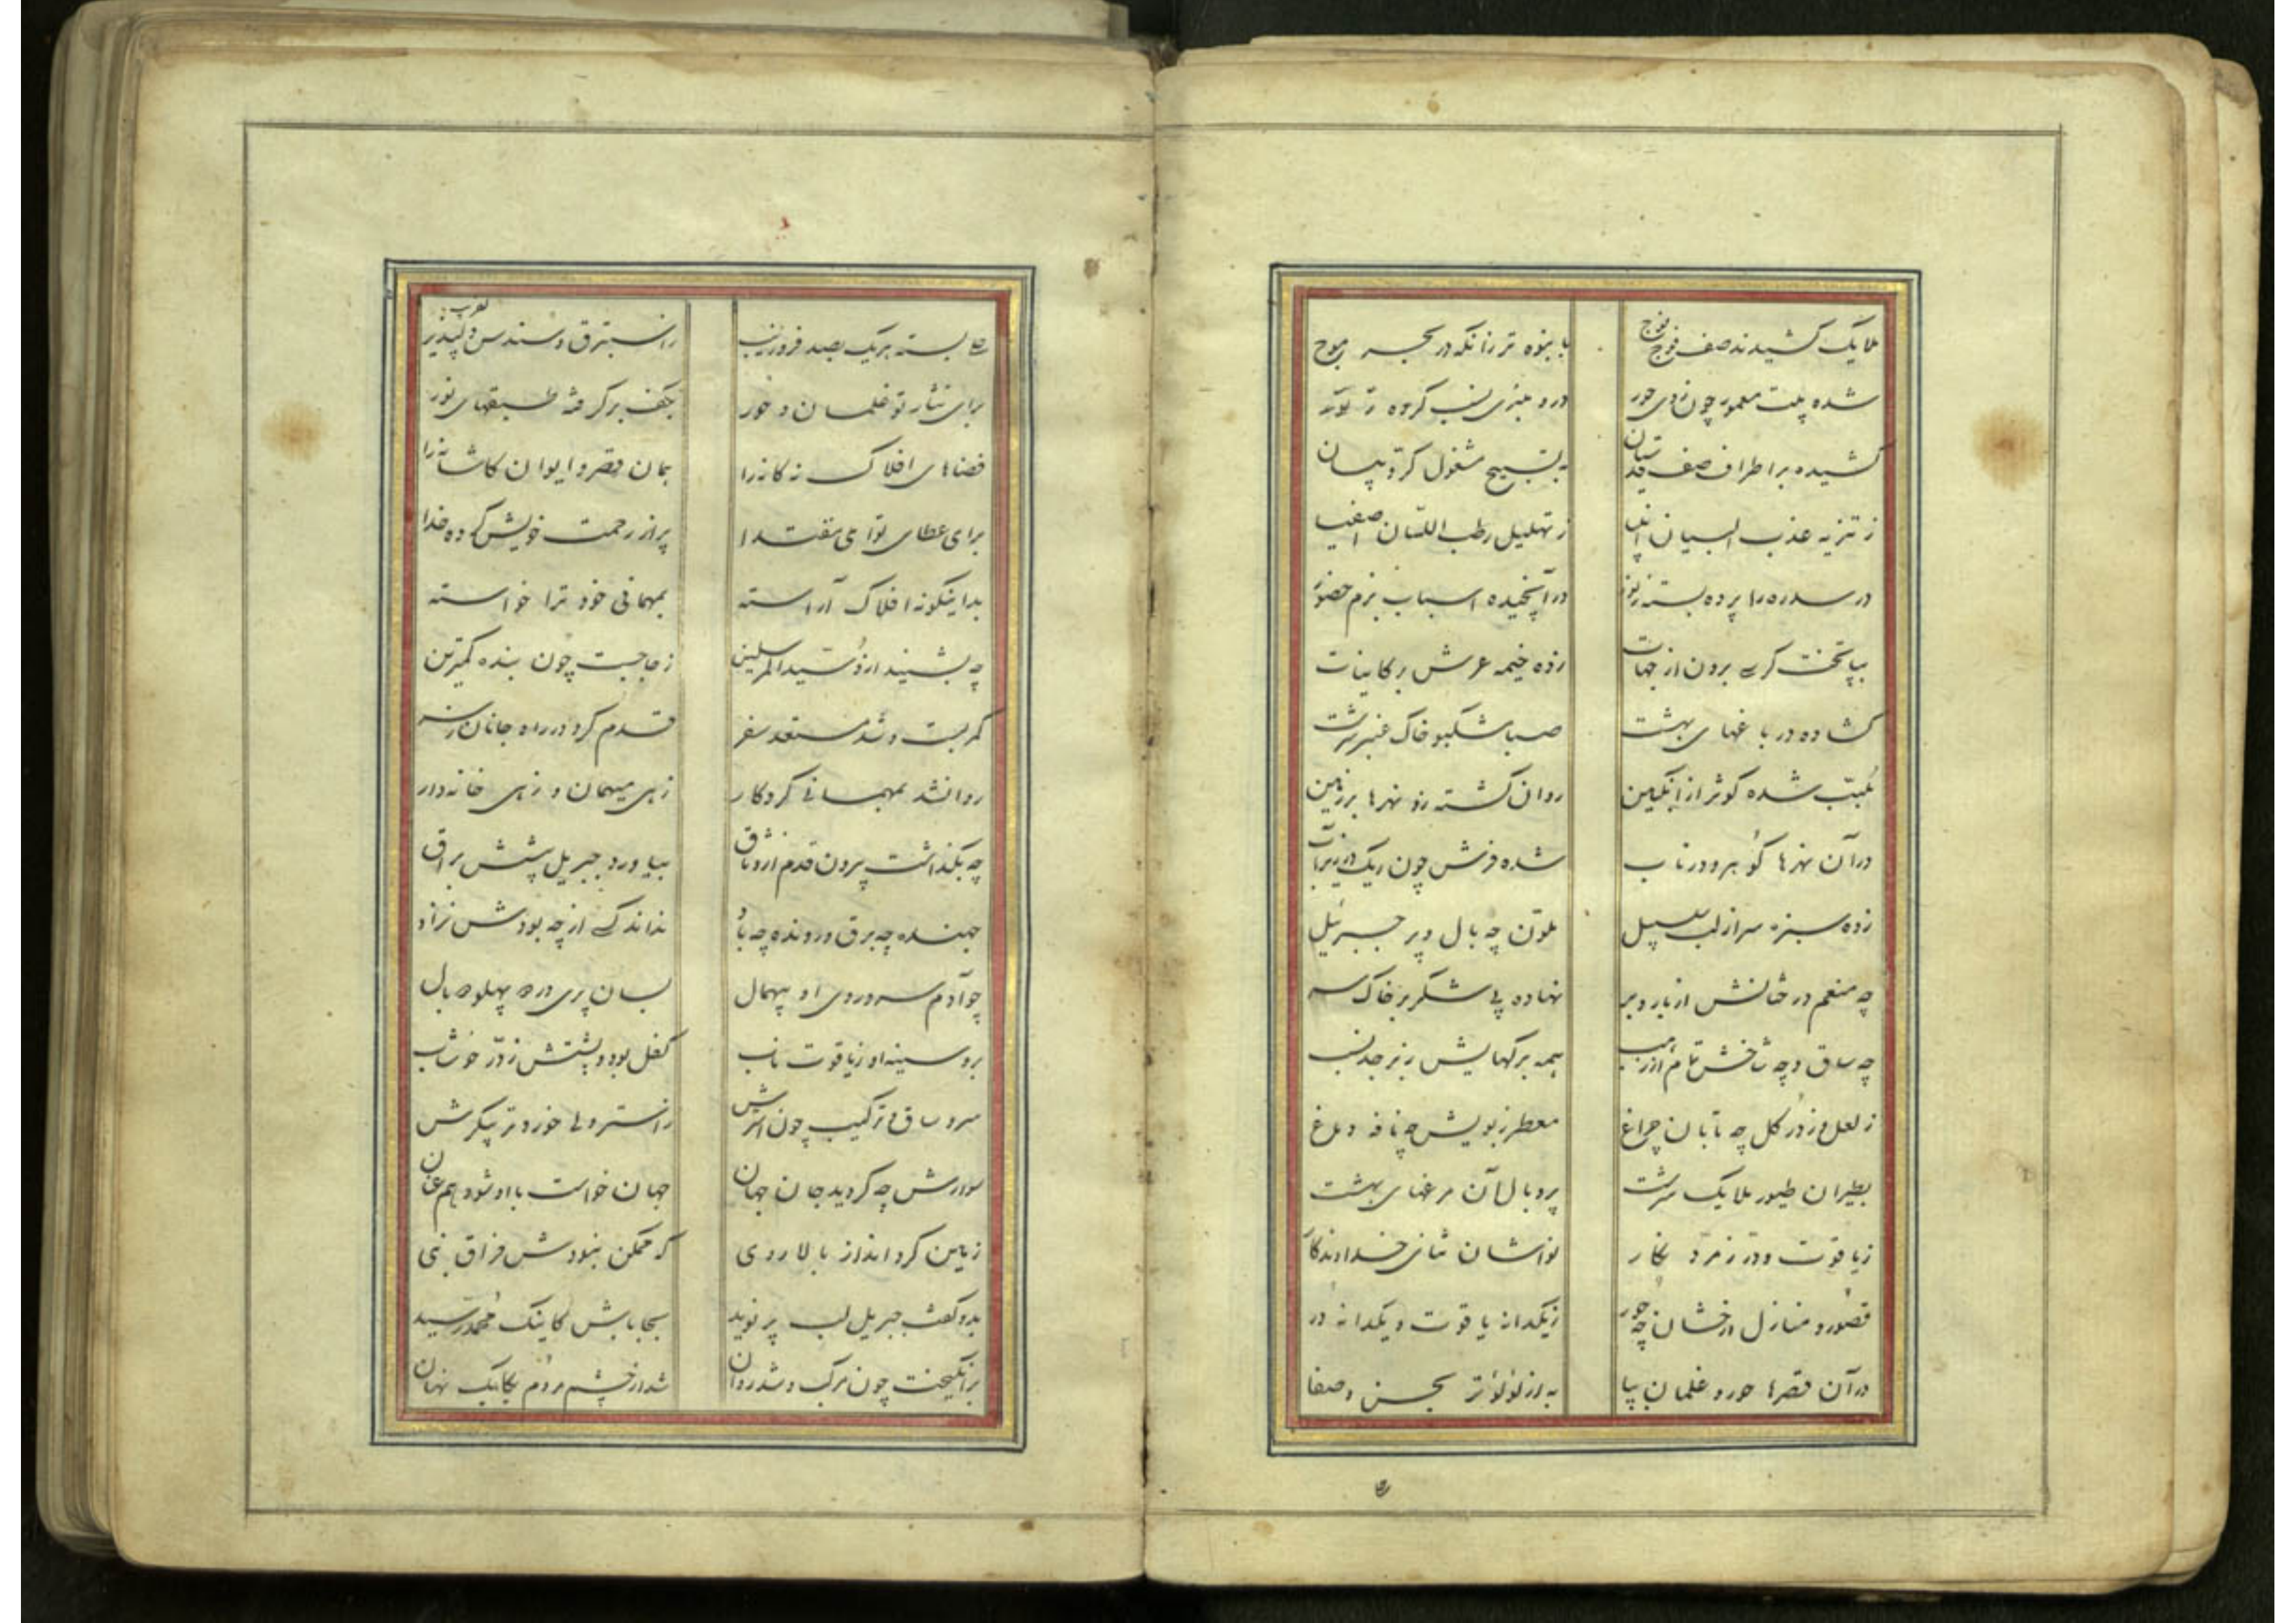 ملایک کشیدند صف فوج فوج بانبوه تر زانکه در بحر موج
شده بیت معمور چون روی حور درو منبری نصب کرده ز نور
کشیده بر اطراف صف قدسیان به تسبیح مشغول کروبیان
ز تنزیه عذب البیان انبیا ز تهلیل رطب اللسان اصفیا
در سدره را پرده بسته ز نور در آن چیده اسباب بزم حضور
بپا تخت کرسی برون از جهات زده خیمه عرش بر کاینات
گشاده در باغهای بهشت صبا مشکبو خاک عنبر سرشت
لبالب شده کوثر از انگبین روان گشته زو نهرها بر زمین
در آن نهرها گوهر و در ناب شده فرش چون ریک در زیر آب
زده سبزه سر از لب سلسبیل ملون چه بال و پر جبرئیل
چه منعم درختانش از بار و بر نهاده پی شکر بر خاک سر
چه ساق و چه شاخش تمام از ذهب همه برگهایش زبرجد نسب
ز لعل و ز در گل چه تابان چراغ معطر ز بویش چه نافه دماغ
بطیران طیور ملایک سرشت پر و بال آن مرغهای بهشت
ز یاقوت و در زمرد نگار نواشان ثنای خداوندگار
قصور و منازل درخشان چه حور ز یکدانه یاقوت و یکدانه در
در آن قصرها حور و غلمان بپا به از لؤلؤ تر بحسن و صفا
بسته بر یک بصد فر و زیب ز استبرق و سندس دلپذیر
برای نثار تو غلمان و حور بکف بر گرفته طبقهای نور
فضاهای افلاک نه کانه را همان قصر و ایوان کاشانه را
برای عطای تو ای مقتدا پر از رحمت خویش کرده خدا
بداینگونه افلاک آراسته بمهمانی خود ترا خواسته
چه بشنید ازو سید المرسلین ز جا جست چون بنده کمترین
کمر بست و شد مستعد سفر قدم کرد در راه جانان ز سر
روانشد بمهمانی کردکار زهی میهمان و زهی خانه دار
چه بگذاشت بیرون قدم از وثاق بیاورد جبریل پیشش براق
جهنده چه برق و رونده چه باد نداند کسی از چه بودش نژاد
چو آدم سر و روی او بیهمال بسان پری در دو پهلو دو بال
بر و سینه او ز یاقوت ناب کفل بود و پشتش ز در خوشاب
سر و ساق و ترکیب چون اشترش ز استر ولی خوردتر پیکرش
سوارش چه گردید جان جهان جهان خواست با او شود هم عنان
زمین کرد انداز بالا روی که ممکن نبودش فراق نبی
بدو گفت جبریل لب پر نوید بجا باش کاینک محمد رسید
برانگیخت چون مرکب و شد روان شد از چشم مردم یکایک نهان